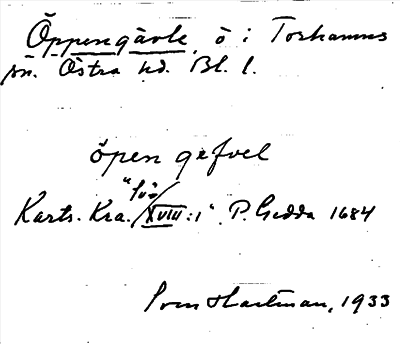 Öppengävle, ö i Torhamns
sn. Östra hd. Bl. l.
öpen gefvel
"Sjö
Kartv. Kra. / XVIII:1" P. Gedda 1684
Sven Hartman, 1933